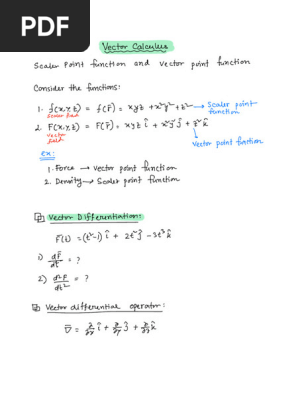 PDF
Vector Calculus
Scaler Point function and vector point function
Consider the functions:
1. f(x,y,z) = f(r̄) = xyz + x²y² + z² → Scaler point function
scaler field
2. F(x,y,z) = F(r̄) = xyz î + x²y² ĵ + z² k̂
vector field
vector point function
Ex:
1. Force → vector point function
2. Density → Scaler point function
Vector Differentiation:
r̄(t) = (t²-1) î + 2t² ĵ - 3t³ k̂
1) dr̄/dt = ?
2) d²r̄/dt² = ?
Vector differential operator:
∇̄ = ∂/∂x î + ∂/∂y ĵ + ∂/∂z k̂